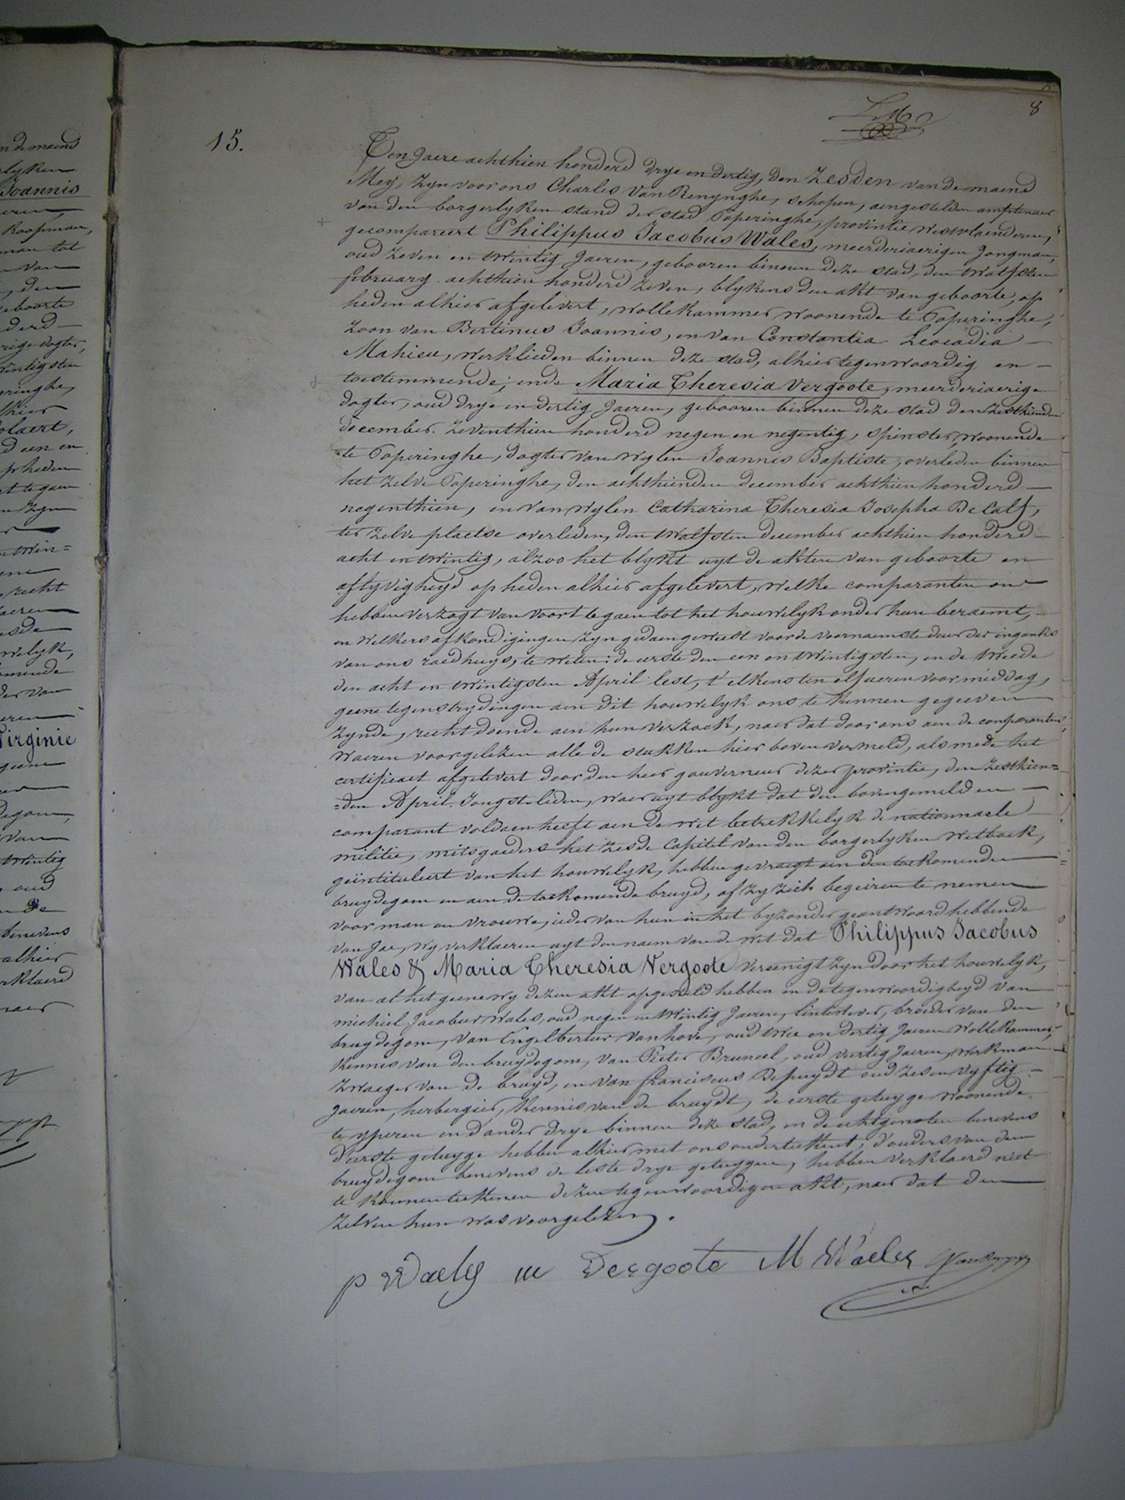 8
15.
Ten jaere achthien honderd drye en dertig, den zesden van de maend
Mey, zyn voor ons Charles Van Renynghe, schepen, aengestelden amptenaer
van den borgerlyken stand der stad Poperinghe, provintie westvlaenderen,
gecompareert Philippus Jacobus Wales, meerderjaerigen jongman,
oud zeven en twintig jaeren, gebooren binnen deze stad, den twalfsten
february achthien honderd zeven, blykens den akt van geboorte, op
heden alhier afgelevert, wollekammer woonende te Poperinghe,
zoon van Bertinus Joannis, en van Constantia Leocadia
Mahieu, werklieden binnen deze stad, alhier tegenwoordig en
toestemmende; ende Maria Theresia Vergoote, meerderjaerige
dogter, oud drye en dertig jaeren, gebooren binnen deze stad den zesthienden
december zeventhien honderd negen en negentig, spinster, woonende
te Poperinghe, dogter van wylen Joannes Baptiste, overleden binnen
het zelve Poperinghe, den achthienden december achthien honderd
negenthien, en van wylen Catharina Theresia Josepha De Calf,
ter zelve plaetse overleden, den twalfsten december achthien honderd
acht en twintig, alzoo het blykt uyt de akten van geboorte en
aflyvigheyd op heden alhier afgelevert, welke comparanten ons
hebben verzogt van voort te gaen tot het houwelyk onder hun beraemt,
en welkers afkondigingen zyn gedaen geweest voor de voornaemste deur der ingank
van ons raedhuys, te weten: de eerste den een en twintigsten, en de tweede
den acht en twintigsten April lest, t'elkens ten elf ueren voormiddag,
geene tegenstrydingen aen dit houwelyk ons te kennen gegeeven
zynde, recht doende aen hun verzoek, naer dat door ons aen de comparanten
waeren voorgelezen alle de stukken hier boven vermeld, als mede het
certificaet afgelevert door den heer gouverneur dezer provintie, den zesthien=
=den April jongstleden, waer uyt blykt dat den bovengemelden
comparant voldaen heeft aen de wet betrekkelyk de nationnaele
militie, mitsgaeders het zesde Capitel van den borgerlyken wetboek,
geïntituleert van het houwelyk, hebben gevraegt aen den toekomenden
bruydegom en aen de toekomende bruyd, of zy zich begeiren te nemen
voor man en vrouwe, ieder van hun in het byzonder geantwoord hebbende
van jae, wy verklaeren uyt den naem van de wet dat Philippus Jacobus
Wales & Maria Theresia Vergoote vereenigt zyn door het houwelyk,
van al het geene wy dezen akt opgesteld hebben in de tegenwoordigheyd van
michiel Jacobus Wales, oud negen en twintig jaeren, broeder van den
bruydegom, van Engelbertus Vanhove, oud twee en dertig jaeren wollekammer,
kennis van den bruydegom, van Pieter Bruneel, oud veertig jaeren, werkman
zwaeger van de bruyd, en van franciscus Depuydt oud zes en vyftig
jaeren, herbergier, kennis van de bruydt, de eerste getuyge woonende
te yperen en d'ander drye binnen deze stad, en de echtgenoten benevens
d'eerste getuyge hebben alhier met ons onderteekent; d'ouders van den
bruydegom benevens de leste drye getuygen, hebben verklaerd niet
te konnen teekenen dezen tegenwoordigen akt, naer dat den
zelven hun was voorgelezen.
p Waely m Vergoote M Waeles